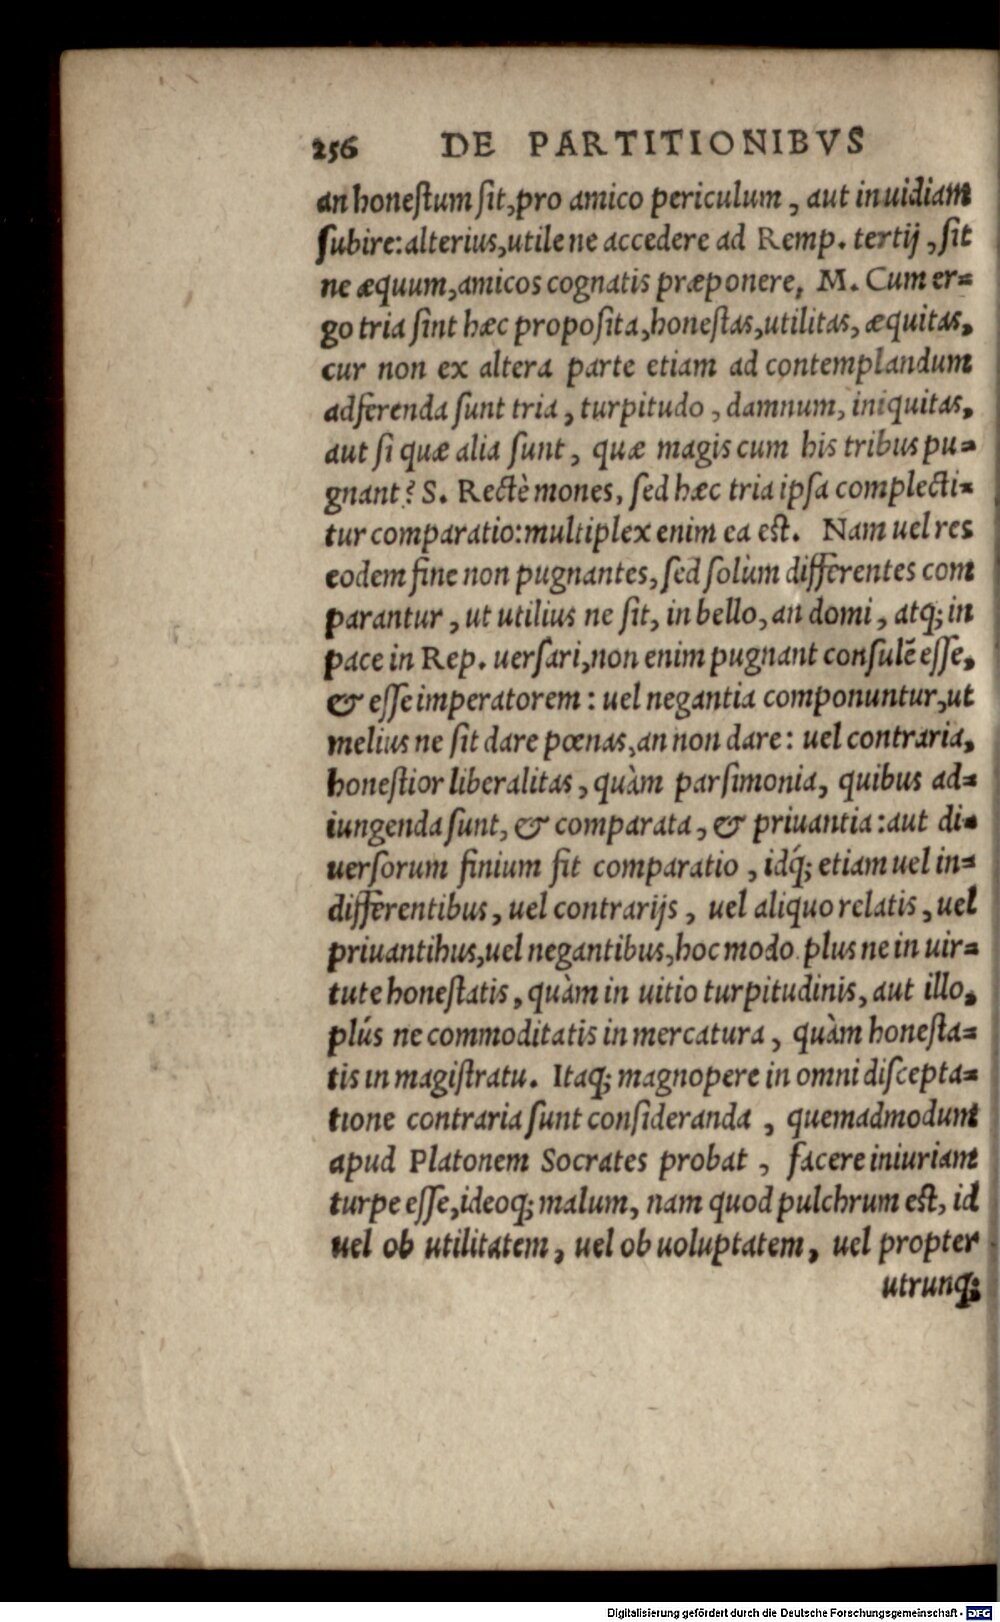 256 DE PARTITIONIBVS
an honestum sit, pro amico periculum, aut inuidiam
subire: alterius, utile ne accedere ad Remp. tertij, sit
ne æquum, amicos cognatis præponere, M. Cum er=
go tria sint hæc proposita, honestas, utilitas, æquitas,
cur non ex altera parte etiam ad contemplandum
adferenda sunt tria, turpitudo, damnum, iniquitas,
aut si quæ alia sunt, quæ magis cum his tribus pu=
gnant? S. Rectè mones, sed hæc tria ipsa complecti=
tur comparatio: multiplex enim ea est. Nam uel res
eodem fine non pugnantes, sed solùm differentes com
parantur, ut utilius ne sit, in bello, an domi, atq; in
pace in Rep. uersari, non enim pugnant consulē esse,
& esse imperatorem: uel negantia componuntur, ut
melius ne sit dare pœnas, an non dare: uel contraria,
honestior liberalitas, quàm parsimonia, quibus ad=
iungenda sunt, & comparata, & priuantia: aut di=
uersorum finium fit comparatio, idq́; etiam uel in=
differentibus, uel contrarijs, uel aliquo relatis, uel
priuantibus, uel negantibus, hoc modo. plus ne in uir=
tute honestatis, quàm in uitio turpitudinis, aut illo,
plús ne commoditatis in mercatura, quàm honesta=
tis in magistratu. Itaq; magnopere in omni discepta=
tione contraria sunt consideranda, quemadmodum
apud Platonem Socrates probat, facere iniuriam
turpe esse, ideoq; malum, nam quod pulchrum est, id
uel ob utilitatem, uel ob uoluptatem, uel propter
utrunq;
Digitalisierung gefördert durch die Deutsche Forschungsgemeinschaft - DFG